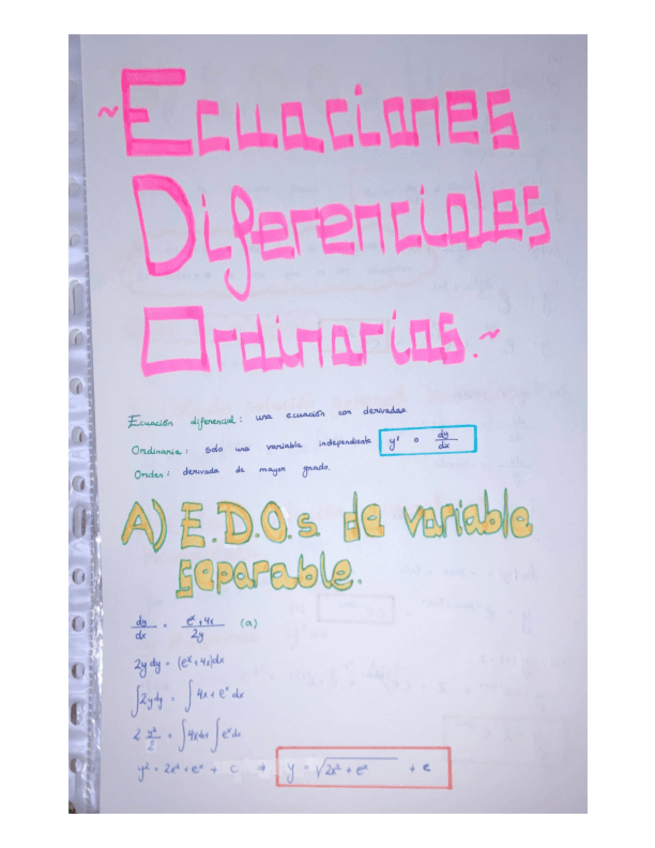 ~Ecuaciones
Diferenciales
Ordinarias.~
Ecuación diferencial: una ecuación con derivadas.
Ordinaria: solo una variable independiente y' o dy/dx
Orden: derivada de mayor grado.
A) E.D.O.s. de variable
separable.
dy/dx = (eˣ+4x)/2y (a)
2y dy = (eˣ+4x)dx
∫2y dy = ∫4x+eˣ dx
2 y²/2 = ∫4x dx + ∫eˣ dx
y² = 2x² + eˣ + c → y = √(2x² + eˣ) + c